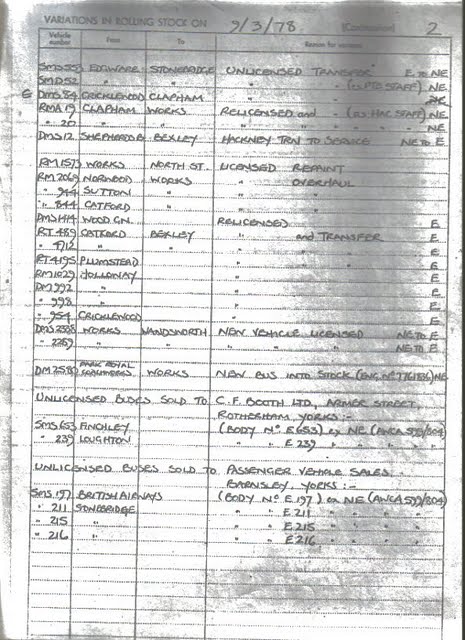 VARIATIONS IN ROLLING STOCK ON 9/3/78 (Continuation) 2
Vehicle number From To Reason for variation
SMS 55 EDGWARE STONEBRIDGE UNLICENSED TRANSFER E to NE
SMD 52 " " " " (ex PTS STAFF) NE
DMS 84 CRICKLEWOOD CLAPHAM
RMA 19 CLAPHAM WORKS RELICENSED and " (ex HAC STAFF) NE
" 20 " " " " " NE
DMS 12 SHEPHERDS B BEXLEY HACKNEY TRN TO SERVICE NE TO E
RM 1573 WORKS NORTH ST. LICENSED REPAINT
RM 2069 NORWOOD WORKS " OVERHAUL
" 944 SUTTON " " "
" 844 CATFORD " " "
DMS 1414 WOOD GN. RELICENSED E
RT 489 CATFORD BEXLEY " and TRANSFER E
" 4712 " " " " E
RT 4195 PLUMSTEAD " " E
RM 1029 HOLLOWAY " " E
DM 992 " " " E
" 998 " " " E
" 954 CRICKLEWOOD " " E
DMS 2358 WORKS WANDSWORTH NEW VEHICLE LICENSED NE TO E
" 2359 " " " " " NE TO E
DM 2580 PARK ROYAL COACHWORKS WORKS NEW BUS INTO STOCK NE
UNLICENSED BUSES SOLD TO C. F. BOOTH LTD, ARMER STREET,
ROTHERHAM, YORKS :-
SMS 653 FINCHLEY (BODY Nº E653) ex NE (ANCA 599/804)
" 239 LOUGHTON " " E 239 " " " "
UNLICENSED BUSES SOLD TO PASSENGER VEHICLE SALES,
BARNSLEY, YORKS :-
SMS 197 BRITISH AIRWAYS (BODY Nº E.197) ex NE (ANCA 599/804)
" 211 STONEBRIDGE " " E211 " " "
" 215 " " " E215 " " "
" 216 " " " E216 " " "